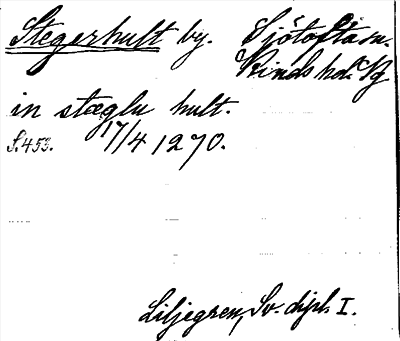 Stegerhult by. Sjötofta sn.
Kinds hd. Äg
in stæglu hult.
S.453. 17/4 1270.
Liljegren, Sv. dipl. I.